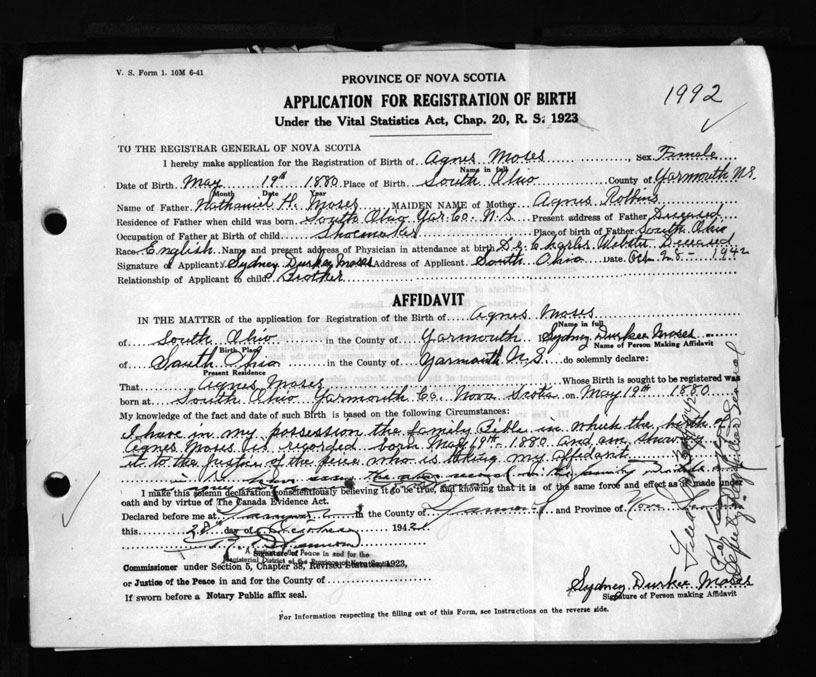 V. S. Form 1. 10M 6-41
PROVINCE OF NOVA SCOTIA
1992
APPLICATION FOR REGISTRATION OF BIRTH
Under the Vital Statistics Act, Chap. 20, R. S. 1923
TO THE REGISTRAR GENERAL OF NOVA SCOTIA
I hereby make application for the Registration of Birth of Agnes Moses, Sex Female
Name in full
Date of Birth May 19th 1880 Place of Birth South Ohio County of Yarmouth N.S.
Month Date Year
Name of Father Nathaniel H. Moses MAIDEN NAME of Mother Agnus Robbins
Residence of Father when child was born South Ohio Yar. Co. N.S Present address of Father Diseased
Occupation of Father at Birth of child Shoemaker Place of birth of Father South Ohio
Race English Name and present address of Physician in attendance at birth Dr. Charles Webster Diseased
Signature of Applicant Sydney Durkee Moses Address of Applicant South Ohio Date Oct 28 - 1942
Relationship of Applicant to child Brother
AFFIDAVIT
IN THE MATTER of the application for Registration of the Birth of Agnes Moses
Name in full
of South Ohio in the County of Yarmouth I Sydney Durkee Moses
Birth Place Name of Person Making Affidavit
of South Ohio in the County of Yarmouth N.S. do solemnly declare:
Present Residence
That Agnes Moses Whose Birth is sought to be registered was
born at South Ohio Yarmouth Co. Nova Scotia on May 19th 1880
My knowledge of the fact and date of such Birth is based on the following Circumstances:
I have in my possession the family Bible in which the birth of
Agnes Moses is recorded born May 19th - 1880 and am showing
it to the Justice of the peice who is taking my affidavit
I have seen the
I make this solemn declaration conscientiously believing it to be true, and knowing that it is of the same force and effect as if made under
oath and by virtue of The Canada Evidence Act.
Declared before me at Yarmouth in the County of Yarmouth and Province of Nova Scotia
this 28th day of October 1942
A
Signature of
Justice of the Peace in and for the
Commissioner under Section 5, Chapter 38, Revised Statutes, 1923,
or Justice of the Peace in and for the County of
If sworn before a Notary Public affix seal.
Sydney Durkee Moses
Signature of Person making Affidavit
For Information respecting the filling out of this Form, see Instructions on the reverse side.